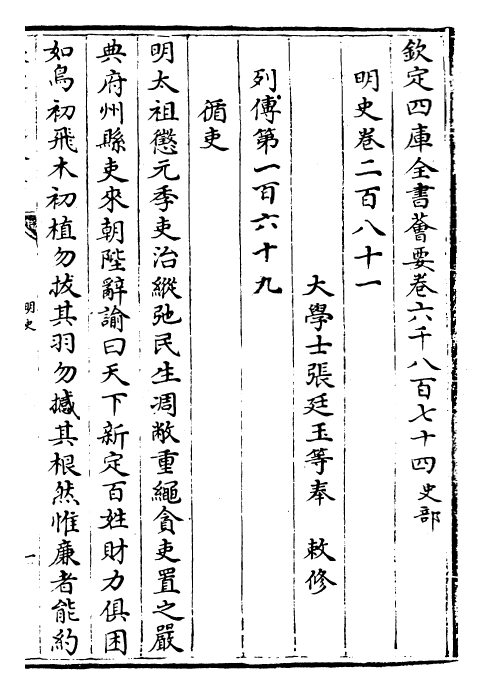 欽定四庫全書薈要卷六千八百七十四史部
明史卷二百八十一
大學士張廷玉等奉　敕修
列傳第一百六十九
循吏
明太祖懲元季吏治縱弛民生凋敝重繩貪吏置之嚴
典府州縣吏來朝陛辭諭曰天下新定百姓財力俱困
如鳥初飛木初植勿拔其羽勿撼其根然惟廉者能約
明史
一